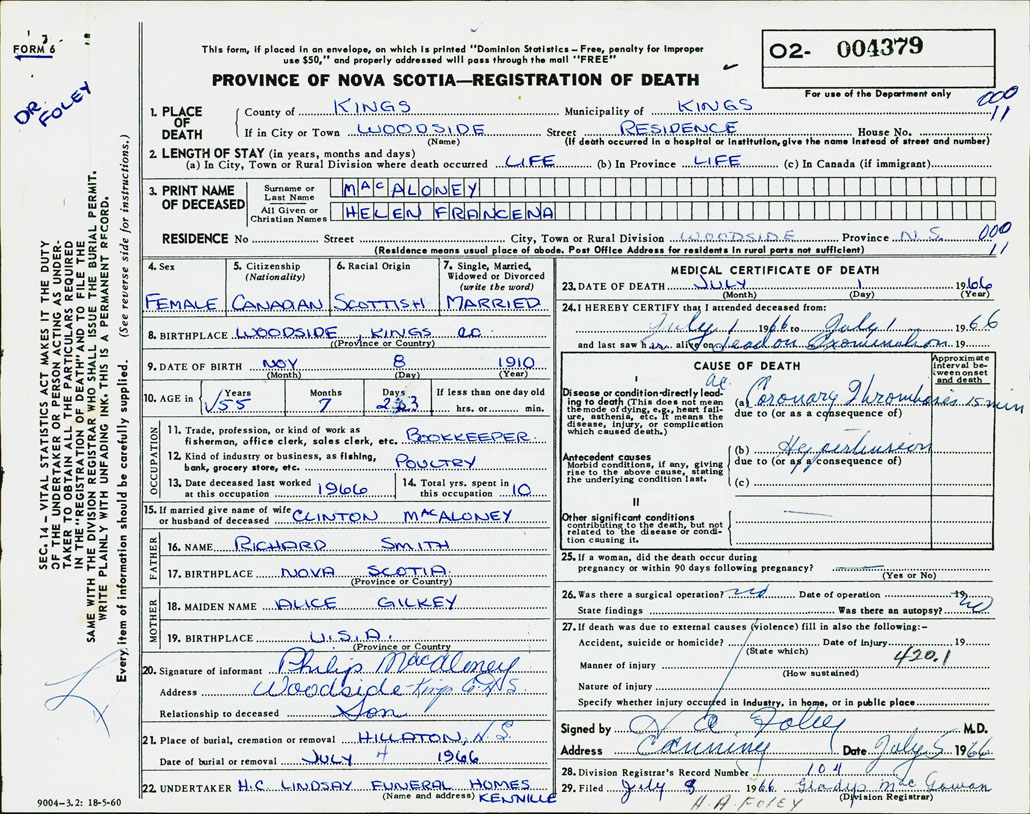 FORM 6
DR. FOLEY
This form, if placed in an envelope, on which is printed "Dominion Statistics – Free, penalty for improper
use $50," and properly addressed will pass through the mail "FREE"
PROVINCE OF NOVA SCOTIA—REGISTRATION OF DEATH
O2- 004379
For use of the Department only
000
11
1. PLACE OF DEATH
County of KINGS Municipality of KINGS
If in City or Town WOODSIDE Street RESIDENCE House No.
(Name) (If death occurred in a hospital or institution, give the name instead of street and number)
2. LENGTH OF STAY (in years, months and days)
(a) In City, Town or Rural Division where death occurred LIFE (b) In Province LIFE (c) In Canada (if immigrant)
3. PRINT NAME OF DECEASED
Surname or Last Name MACALONEY
All Given or Christian Names HELEN FRANCENA
RESIDENCE No Street City, Town or Rural Division WOODSIDE Province N.S.
(Residence means usual place of abode. Post Office Address for residents in rural parts not sufficient)
000
11
4. Sex FEMALE
5. Citizenship (Nationality) CANADIAN
6. Racial Origin SCOTTISH
7. Single, Married, Widowed or Divorced (write the word) MARRIED
8. BIRTHPLACE WOODSIDE, KINGS CO.
(Province or Country)
9. DATE OF BIRTH NOV 8 1910
(Month) (Day) (Year)
10. AGE in Years 55 Months 7 Days 23 If less than one day old
hrs. or min.
OCCUPATION
11. Trade, profession, or kind of work as
fisherman, office clerk, sales clerk, etc. BOOKKEEPER.
12. Kind of industry or business, as fishing,
bank, grocery store, etc. POULTRY
13. Date deceased last worked at this occupation 1966
14. Total yrs. spent in this occupation 10
15. If married give name of wife
or husband of deceased CLINTON MACALONEY
FATHER
16. NAME RICHARD SMITH
17. BIRTHPLACE NOVA SCOTIA.
(Province or Country)
MOTHER
18. MAIDEN NAME ALICE GILKEY
19. BIRTHPLACE U.S.A.
(Province or Country)
20. Signature of informant Philip MacAloney
Address Woodside Kings Co NS
Relationship to deceased Son
21. Place of burial, cremation or removal HILLATON, N.S.
Date of burial or removal JULY 4 1966
22. UNDERTAKER H.C. LINDSAY FUNERAL HOMES
(Name and address) KENVILLE
MEDICAL CERTIFICATE OF DEATH
23. DATE OF DEATH JULY 1 1966
(Month) (Day) (Year)
24. I HEREBY CERTIFY that I attended deceased from:
July 1 1966 to July 1 1966
and last saw her alive on dead on Examination 19
CAUSE OF DEATH
Approximate interval between onset and death
I
Disease or condition directly leading to death (This does not mean the mode of dying, e.g., heart failure, asthenia, etc. It means the disease, injury, or complication which caused death.)
(a) Ac. Coronary Thrombosis 15 min
due to (or as a consequence of)
Antecedent causes
Morbid conditions, if any, giving rise to the above cause, stating the underlying condition last.
(b) Hypertension
due to (or as a consequence of)
(c)
II
Other significant conditions
contributing to the death, but not related to the disease or condition causing it.
25. If a woman, did the death occur during
pregnancy or within 90 days following pregnancy?
(Yes or No)
26. Was there a surgical operation? no Date of operation 19
State findings Was there an autopsy? no
27. If death was due to external causes (violence) fill in also the following:–
Accident, suicide or homicide? Date of injury 19
(State which)
420.1
Manner of injury
(How sustained)
Nature of injury
Specify whether injury occurred in industry, in home, or in public place
Signed by H A Foley M.D.
Address Canning Date July 5 1966
28. Division Registrar's Record Number 104
29. Filed July 8 1966 Gladys MacGowan
(Division Registrar)
H.A. FOLEY
SEC. 14 – VITAL STATISTICS ACT MAKES IT THE DUTY
OF THE UNDERTAKER OR PERSON ACTING AS UNDER-
TAKER TO OBTAIN ALL THE PARTICULARS REQUIRED
IN THE "REGISTRATION OF DEATH" AND TO FILE THE
SAME WITH THE DIVISION REGISTRAR WHO SHALL ISSUE THE BURIAL PERMIT.
WRITE PLAINLY WITH UNFADING INK. THIS IS A PERMANENT RECORD.
Every item of information should be carefully supplied. (See reverse side for instructions.)
9004–3.2: 18-5-60